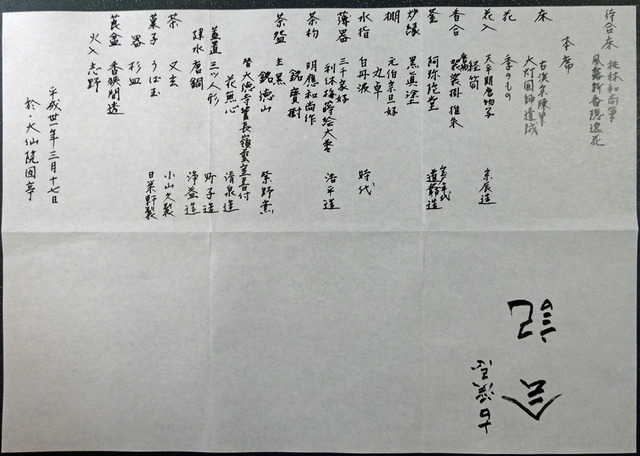 会記
待合床 桃林和尚筆
風露新香隠逸花
本席
床 古溪宗陳筆
大灯国師遺誡
花 季のもの
花入 天平期唐物子
経筒
香合 袈裟掛 推朱
釜 阿弥陀堂
炉縁 黒真塗
棚 元伯宗旦好
丸卓
水指 白丹波 時代
薄器 三千家好
利休梅蒔絵大棗 浩平造
茶杓 明應和尚作
銘 寶樹
茶盌 主黒 銘 徳山 紫野窯
替 大徳寺管長嶺雲室書付
花無心 清泉造
蓋置 三ツ人形 野子造
建水 唐銅 浄益造
茶 又玄 小山久製
菓子 うば玉 日栄軒製
器 杉皿
莨盆 香狭間透
火入 志野
平成卅一年三月十七日
於・大仙院囙亭